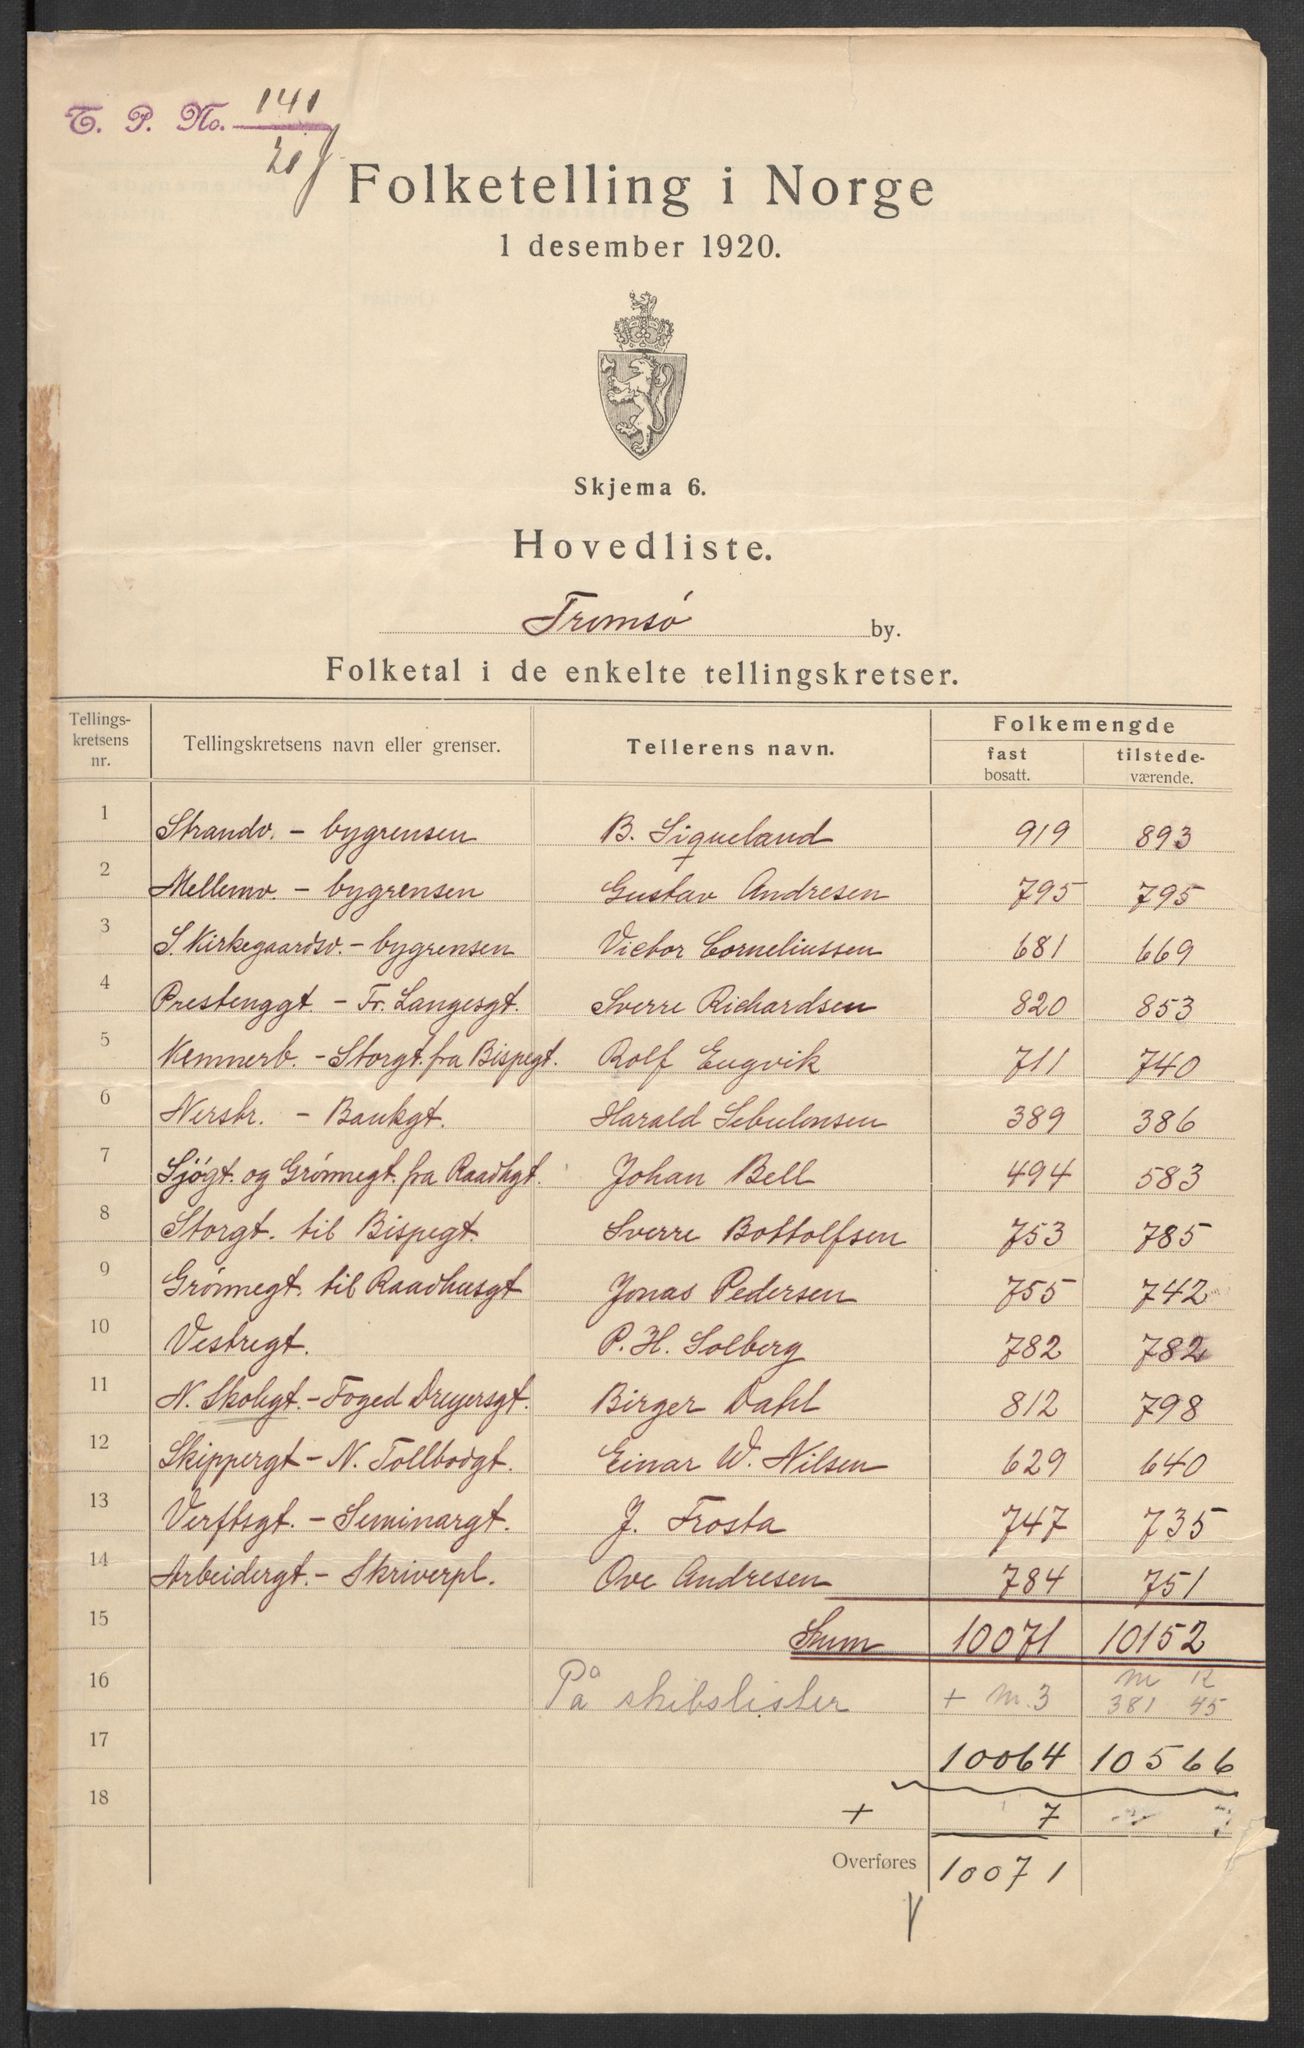 T. P. No. 141
20
Folketelling i Norge
1 desember 1920.
Skjema 6.
Hovedliste.
Tromsø by.
Folketal i de enkelte tellingskretser.
Tellings-kretsens nr. Tellingskretsens navn eller grenser. Tellerens navn. Folkemengde
fast bosatt. tilstede-værende.
1 Strandv. - bygrensen B. Siqueland 919 893
2 Mellemv. - bygrensen Gustav Andresen 795 795
3 S. Kirkegaardsv. - bygrensen Victor Corneliussen 681 669
4 Prestenggt. - Fr. Langesgt. Sverre Richardsen 820 853
5 Kemnerb. - Storgt. fra Bispegt. Rolf Engvik 711 740
6 Nerstr. - Bankgt. Harald Sebulonsen 389 386
7 Sjøgt. og Grønnegt. fra Raadhgt. Johan Bell 494 583
8 Storgt. til Bispegt. Sverre Bottolfsen 753 785
9 Grønnegt. til Raadhusgt Jonas Pedersen 755 742
10 Vestregt. P. H. Solberg 782 782
11 N. Skolegt. - Foged Dreyersgt. Birger Dahl 812 798
12 Skippergt - N. Tollbodgt. Einar W. Nilsen 629 640
13 Verftsgt. - Seminargt. J. Frosta 747 735
14 Arbeidergt. - Skriverpl. Ove Andresen 784 751
15 Sum 10071 10152
16 På skibslister + m. 3 m 381 k 45
17 10064 10566
18 + 7
Overføres 10071